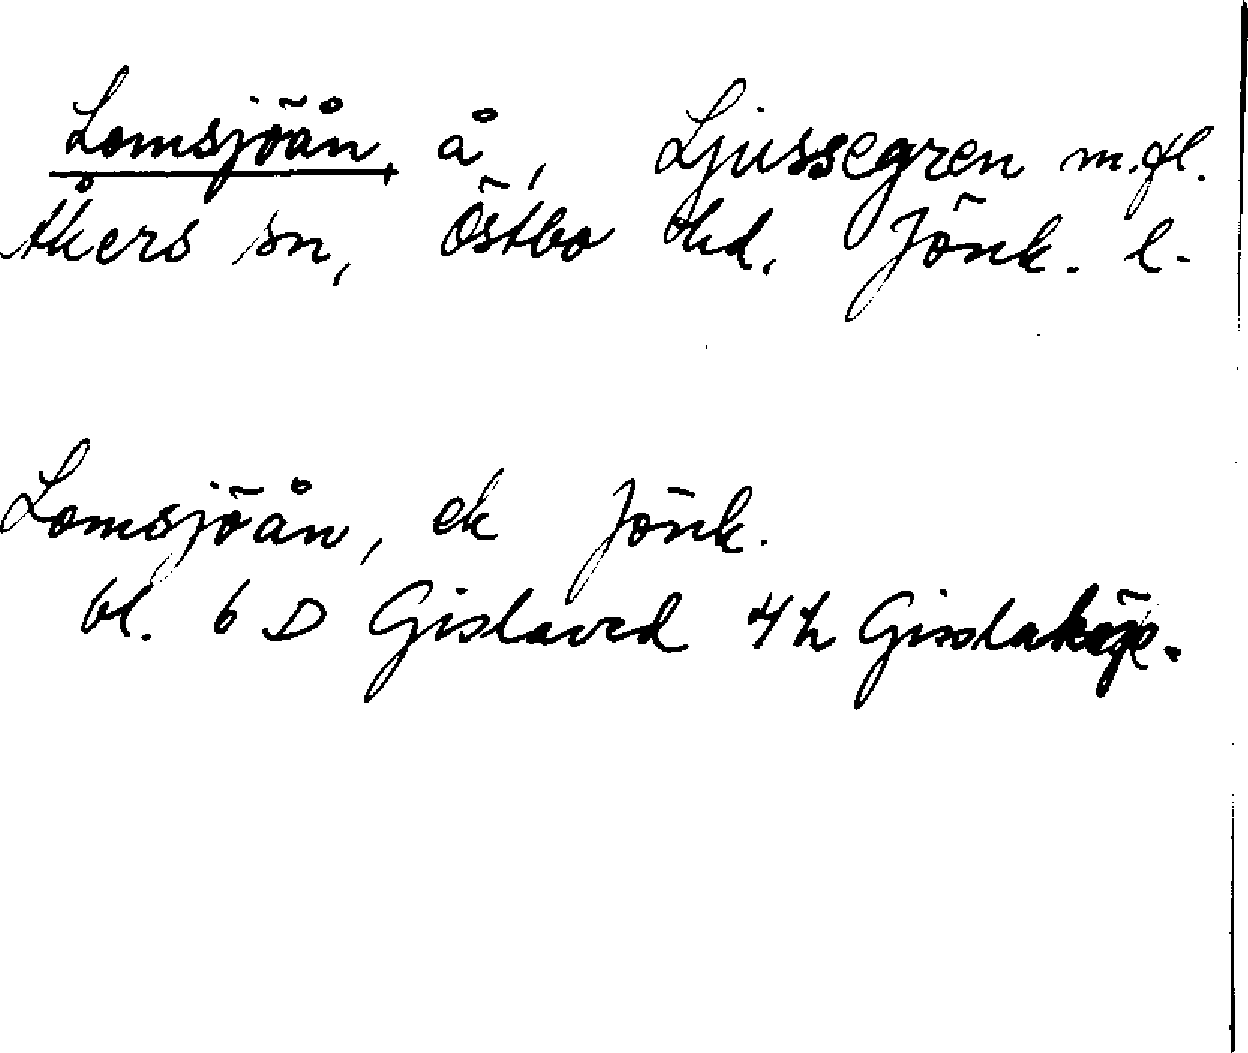 Lomsjöån, å, Ljussegren m.fl.
Åkers sn, Östbo hd. Jönk. l.
Lomsjöån, ek Jönk.
bl. 6 D Gislaved 4h Gisslaköp.